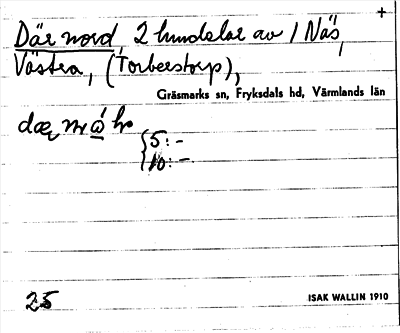 +
Där nord, 2 hundelar av 1 Näs,
Västra, (Torberstorp),
Gräsmarks sn, Fryksdals hd, Värmlands län
5:-
10:-
25
ISAK WALLIN 1910